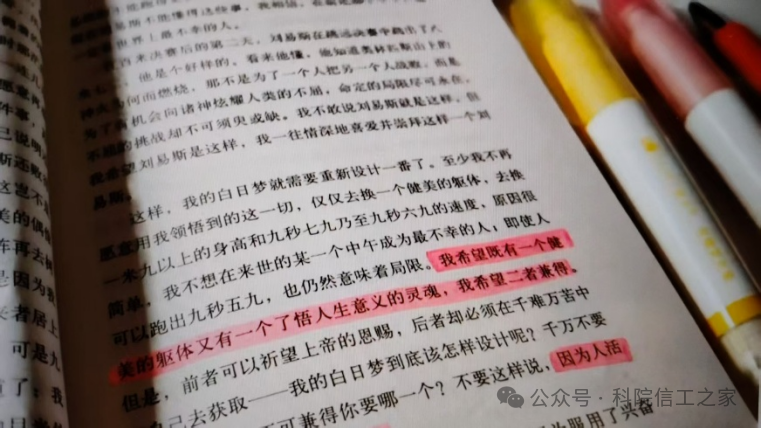 世界上最不幸的人。
百米决赛后的第二天，刘易斯在跳远决赛中跳出了八
他是个好样的。看来他懂，他知道奥林匹斯山上的
为何而燃烧，那不是为了一个人把另一个人战败，而是
为了有机会向诸神炫耀人类的不屈，命定的局限尽可永在，
不屈的挑战却不可须臾或缺。我不敢说刘易斯就是这样，但
我希望刘易斯是这样，我一往情深地喜爱并崇拜这样一个刘
易斯。
这样，我的白日梦就需要重新设计一番了。至少我不再
愿意用我领悟到的这一切，仅仅去换一个健美的躯体，去换
一米九以上的身高和九秒七九乃至九秒六九的速度，原因很
简单，我不想在来世的某一个中午成为最不幸的人；即使人
可以跑出九秒五九，也仍然意味着局限。我希望既有一个健
美的躯体又有一个了悟人生意义的灵魂，我希望二者兼得。
但是，前者可以祈望上帝的恩赐，后者却必须在千难万苦中
自己去获取——我的白日梦到底该怎样设计呢？千万不要
不可兼得你要哪一个？不要这样说，因为人活
服用了兴奋
愿再
已说
美的偶
车再去
是因为
居上
可是九
了：我
公众号·科院信工之家